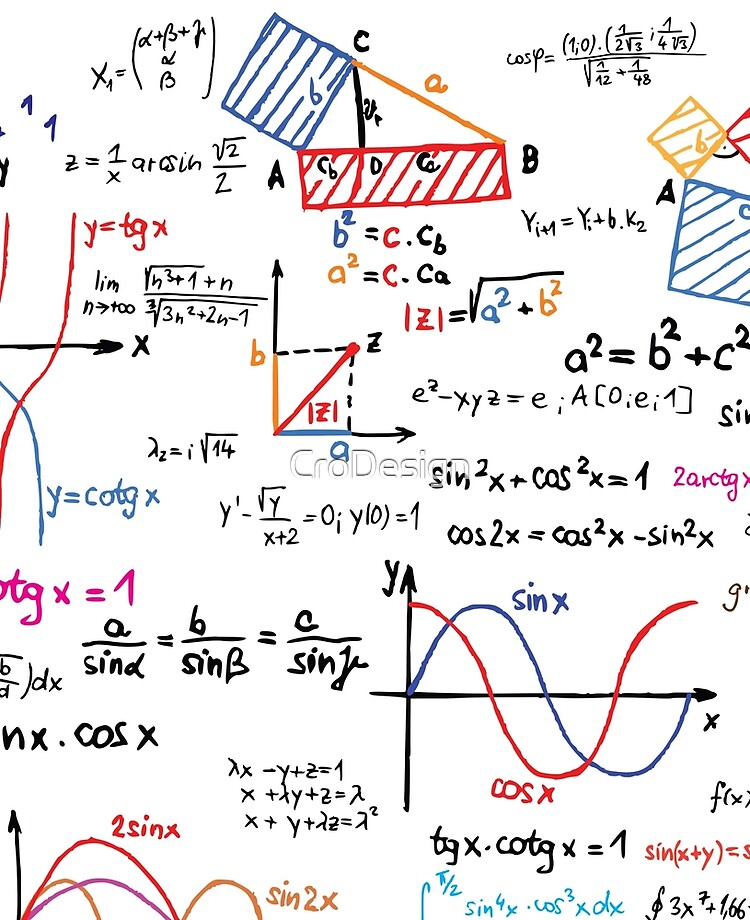 X₁ = (α+β+γ
α
β)
C
cosφ = (1;0).(1/2√3 ; 1/4√3) / √(1/12 + 1/48)
b
a
1 1
y
z = 1/x arcsin √2/2
A
C_b
D
C_a
B
b
A
c
y=tgx
b² = c.c_b
Y_{i+1} = Y_i + b.K₂
a² = c.c_a
lim n→+∞ (√(n³+1) + n) / ∛(3n²+2n-1)
|z| = √(a² + b²)
x
b
z
a² = b² + c²
|z|
e^z - xyz = e ; A[0;e;1]
sin
λ₂ = i√14
a
CroDesign
sin²x + cos²x = 1
2arctgx
y=cotgx
y' - √y/(x+2) = 0; y(0) = 1
cos2x = cos²x - sin²x
y
otgx = 1
sinx
gr
a/sinα = b/sinβ = c/sinγ
b/a )dx
x
nx.cosx
λx - y + z = 1
x + λy + z = λ
x + y + λz = λ²
cosx
f(x)
2sinx
tgx.cotgx = 1
sin(x+y) = s
sin2x
∫^{π/2} sin⁴x.cos³x dx
∮3x⁷+1,66